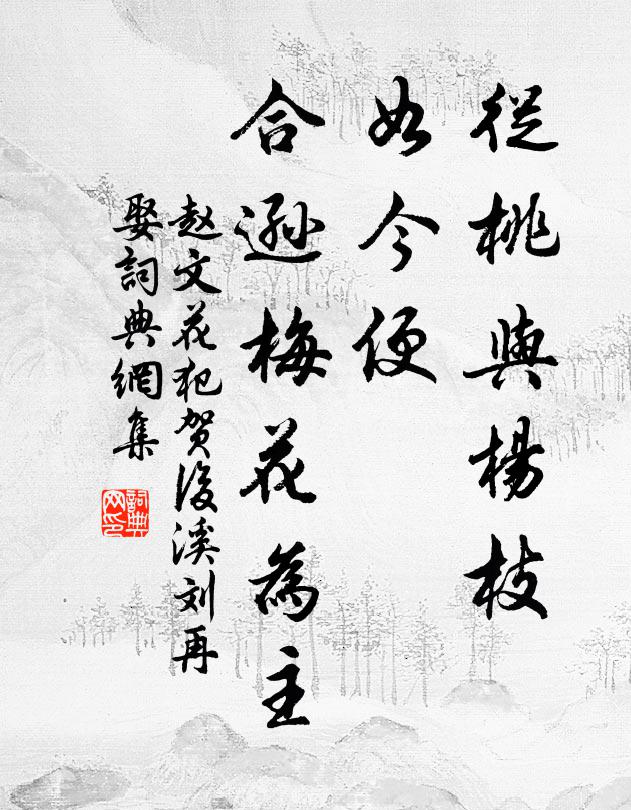 從桃與楊枝
如今便
合遜梅花為主
赵文花犯贺後溪刘再
娶詞典網集
詞典网印